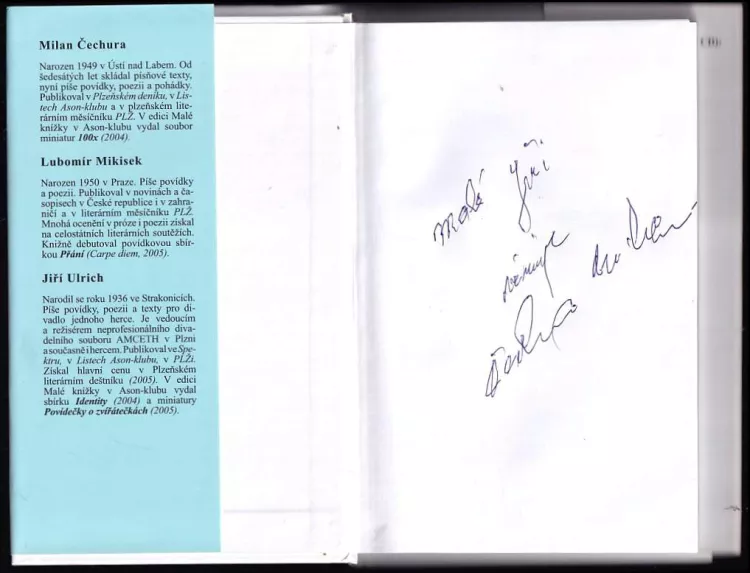 Milan Čechura
Narozen 1949 v Ústí nad Labem. Od
šedesátých let skládal písňové texty,
nyní píše povídky, poezii a pohádky.
Publikoval v Plzeňském deníku, v Lis-
tech Ason-klubu a v plzeňském lite-
rárním měsíčníku PLŽ. V edici Malé
knížky v Ason-klubu vydal soubor
miniatur 100x (2004).
Lubomír Mikisek
Narozen 1950 v Praze. Píše povídky
a poezii. Publikoval v novinách a ča-
sopisech v České republice i v zahra-
ničí a v literárním měsíčníku PLŽ.
Mnohá ocenění v próze i poezii získal
na celostátních literárních soutěžích.
Knižně debutoval povídkovou sbír-
kou Přání (Carpe diem, 2005).
Jiří Ulrich
Narodil se roku 1936 ve Strakonicích.
Píše povídky, poezii a texty pro di-
vadlo jednoho herce. Je vedoucím
a režisérem neprofesionálního diva-
delního souboru AMCETH v Plzni
a současně i hercem. Publikoval ve Spe-
ktru, v Listech Ason-klubu, v PLŽi.
Získal hlavní cenu v Plzeňském
literárním deštníku (2005). V edici
Malé knížky v Ason-klubu vydal
sbírku Identity (2004) a miniatury
Povídečky o zvířátečkách (2005).